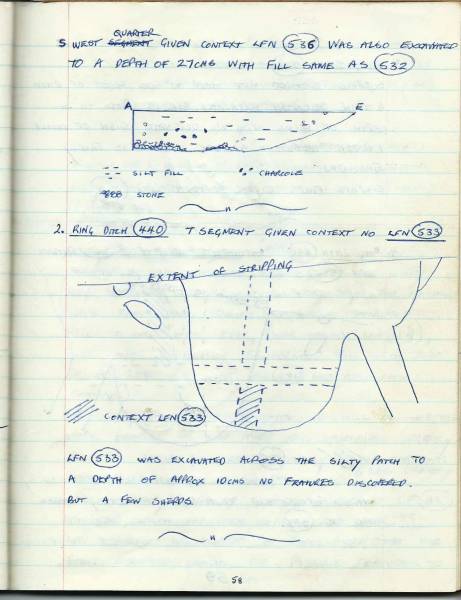 QUARTER
S WEST SEGMENT GIVEN CONTEXT LFN 536 WAS ALSO EXCAVATED
TO A DEPTH OF 27CMS WITH FILL SAME AS 532
A E
SILT FILL CHARCOLE
STONE
2. RING DITCH 440 T SEGMENT GIVEN CONTEXT NO LFN 533
EXTENT OF STRIPPING
CONTEXT LFN 533
LFN 533 WAS EXCAVATED ACROSS THE SILTY PATCH TO
A DEPTH OF APPROX 10CMS NO FEATURES DISCOVERED.
BUT A FEW SHERDS.
58